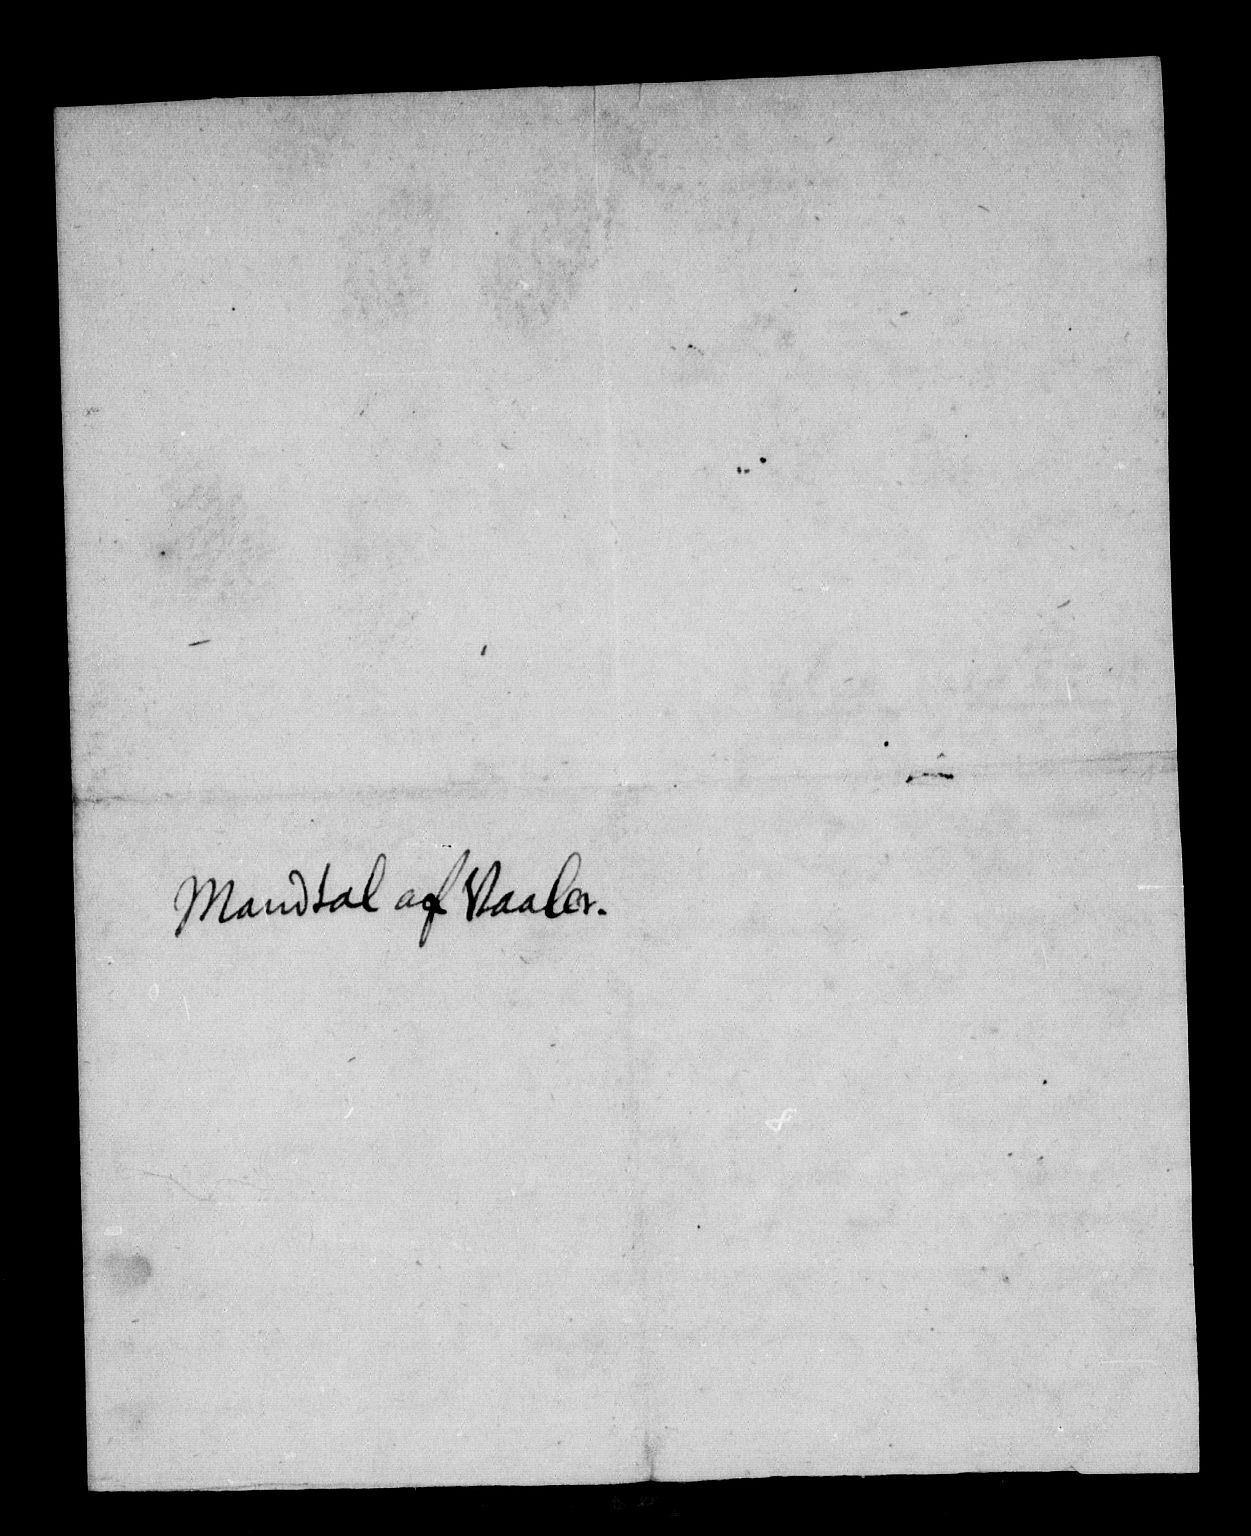 Mandtal af Vaaler.